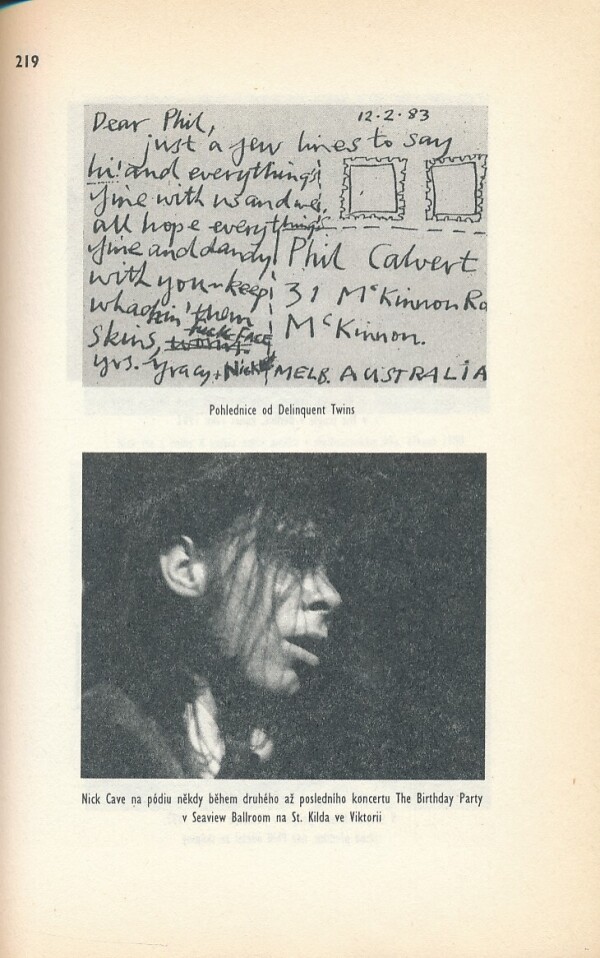 219
12·2·83
Dear Phil,
just a few lines to say
hi! and everything's
fine with us and we
all hope everything's
fine and dandy
with you - keep
whackin' them
skins,
fuck-FACE
yrs. Tracy + Nick
Phil Calvert
31 McKinnon Rd
McKinnon.
MELB. AUSTRALIA
Pohlednice od Delinquent Twins
Nick Cave na pódiu někdy během druhého až posledního koncertu The Birthday Party
v Seaview Ballroom na St. Kilda ve Viktorii